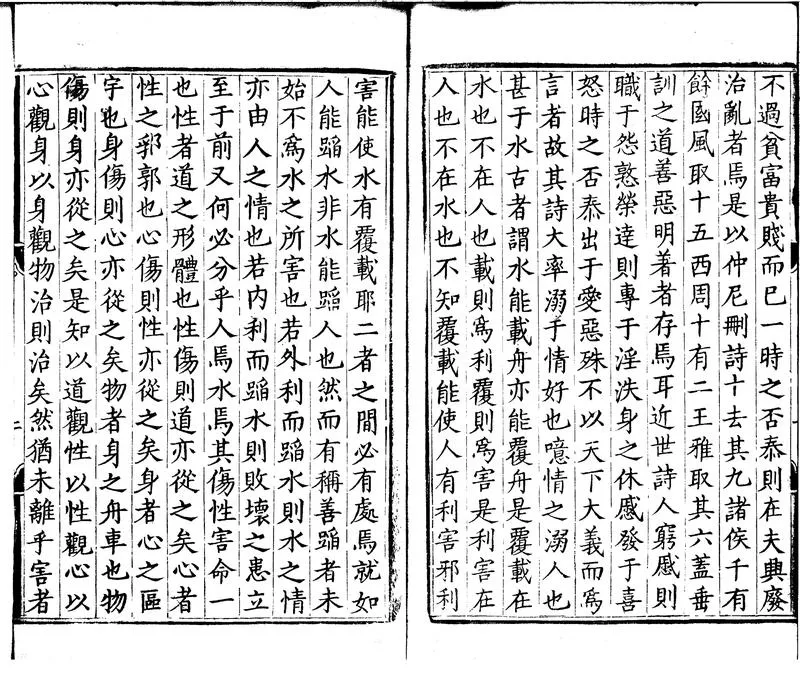 不過貧富貴賤而已一時之否泰則在夫興廢
治亂者焉是以仲尼刪詩十去其九諸侯千有
餘國風取十五西周十有二王雅取其六蓋垂
訓之道善惡明著者存焉耳近世詩人窮慼則
職于怨憝榮達則專于淫泆身之休慼發于喜
怒時之否泰出于愛惡殊不以天下大義而為
言者故其詩大率溺乎情好也噫情之溺人也
甚于水古者謂水能載舟亦能覆舟是覆載在
水也不在人也載則為利覆則為害是利害在
人也不在水也不知覆載能使人有利害邪利
害能使水有覆載耶二者之間必有處焉就如
人能蹈水非水能蹈人也然而有稱善蹈者未
始不為水之所害也若外利而蹈水則水之情
亦由人之情也若内利而蹈水則敗壞之患立
至于前又何必分乎人焉水焉其傷性害命一
也性者道之形體也性傷則道亦從之矣心者
性之郛郭也心傷則性亦從之矣身者心之區
宇也身傷則心亦從之矣物者身之舟車也物
傷則身亦從之矣是知以道觀性以性觀心以
心觀身以身觀物治則治矣然猶未離乎害者